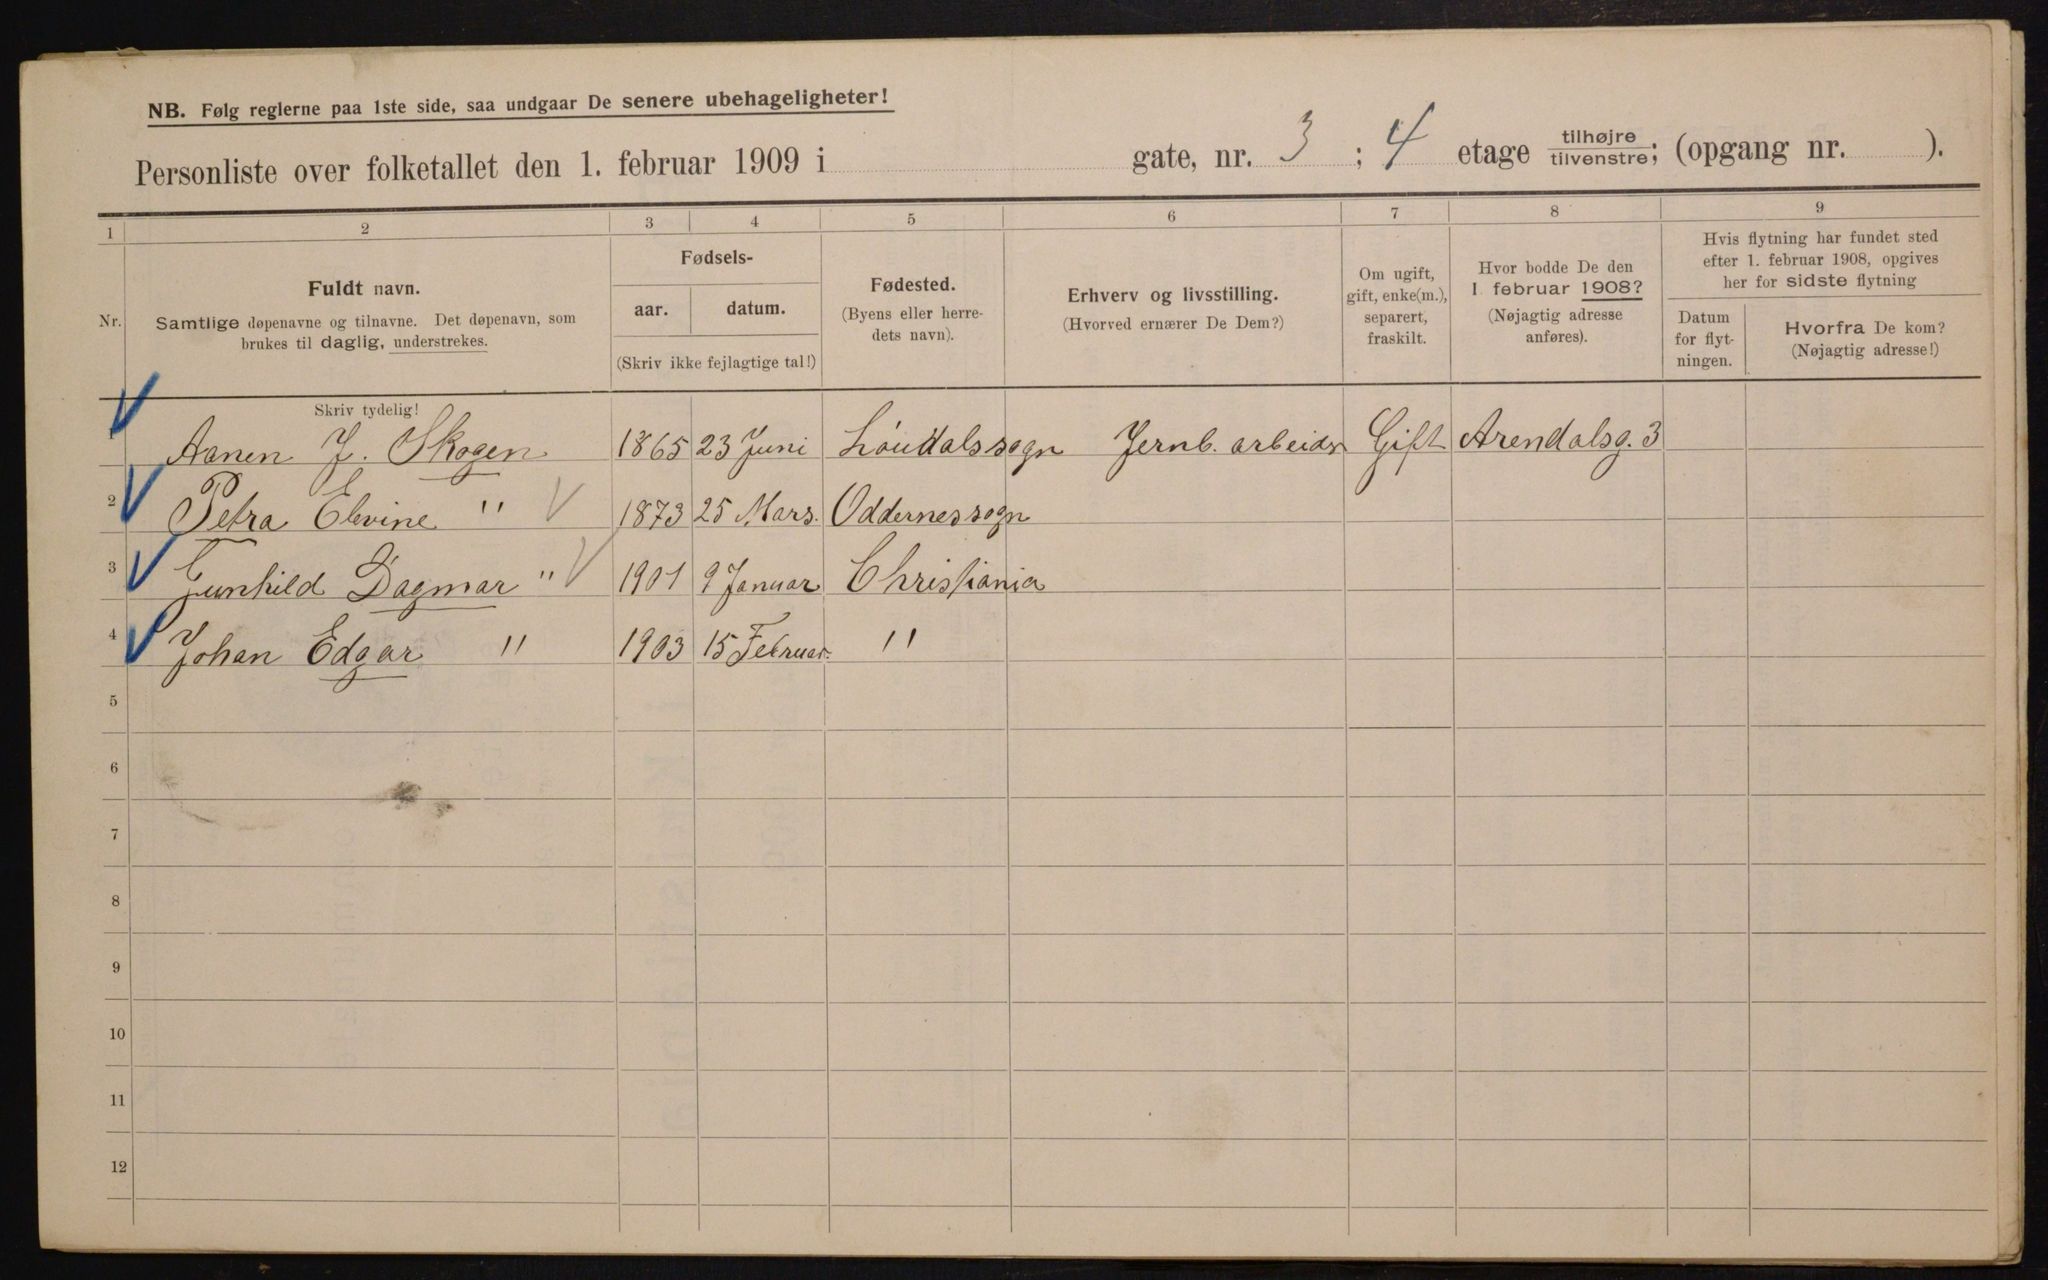 NB. Følg reglerne paa 1ste side, saa undgaar De senere ubehageligheter!
Personliste over folketallet den 1. februar 1909 i gate, nr. 3 ; 4 etage tilhøjre tilvenstre; (opgang nr. ).
1 2 3 4 5 6 7 8 9
Nr.
Fuldt navn.
Samtlige døpenavne og tilnavne. Det døpenavn, som
brukes til daglig, understrekes.
Fødsels-
aar. datum.
(Skriv ikke fejlagtige tal!)
Fødested.
(Byens eller herre-
dets navn).
Erhverv og livsstilling.
(Hvorved ernærer De Dem?)
Om ugift,
gift, enke(m.),
separert,
fraskilt.
Hvor bodde De den
1. februar 1908?
(Nøjagtig adresse
anføres).
Hvis flytning har fundet sted
efter 1. februar 1908, opgives
her for sidste flytning
Datum
for flyt-
ningen.
Hvorfra De kom?
(Nøjagtig adresse!)
Skriv tydelig!
1 Aanen J. Skogen 1865 23 Juni Gift Arendalsg. 3
Jernb. arbeider
2 Petra Elvine " 1873 25 Mars. Oddernessogn
3 Gunhild Dagmar " 1901 9 Januar Christiania
4 Johan Edgar " 1903 15 Februar. "
5
6
7
8
9
10
11
12